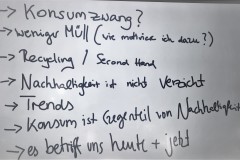 → Konsumzwang?
→ weniger Müll (wie motiviere ich dazu?)
→ Recycling / Second Hand
→ Nachhaltigkeit ist nicht Verzicht
→ Trends
→ Konsum ist Gegenteil von Nachhaltigkeit
→ es betrifft uns heute + jetzt